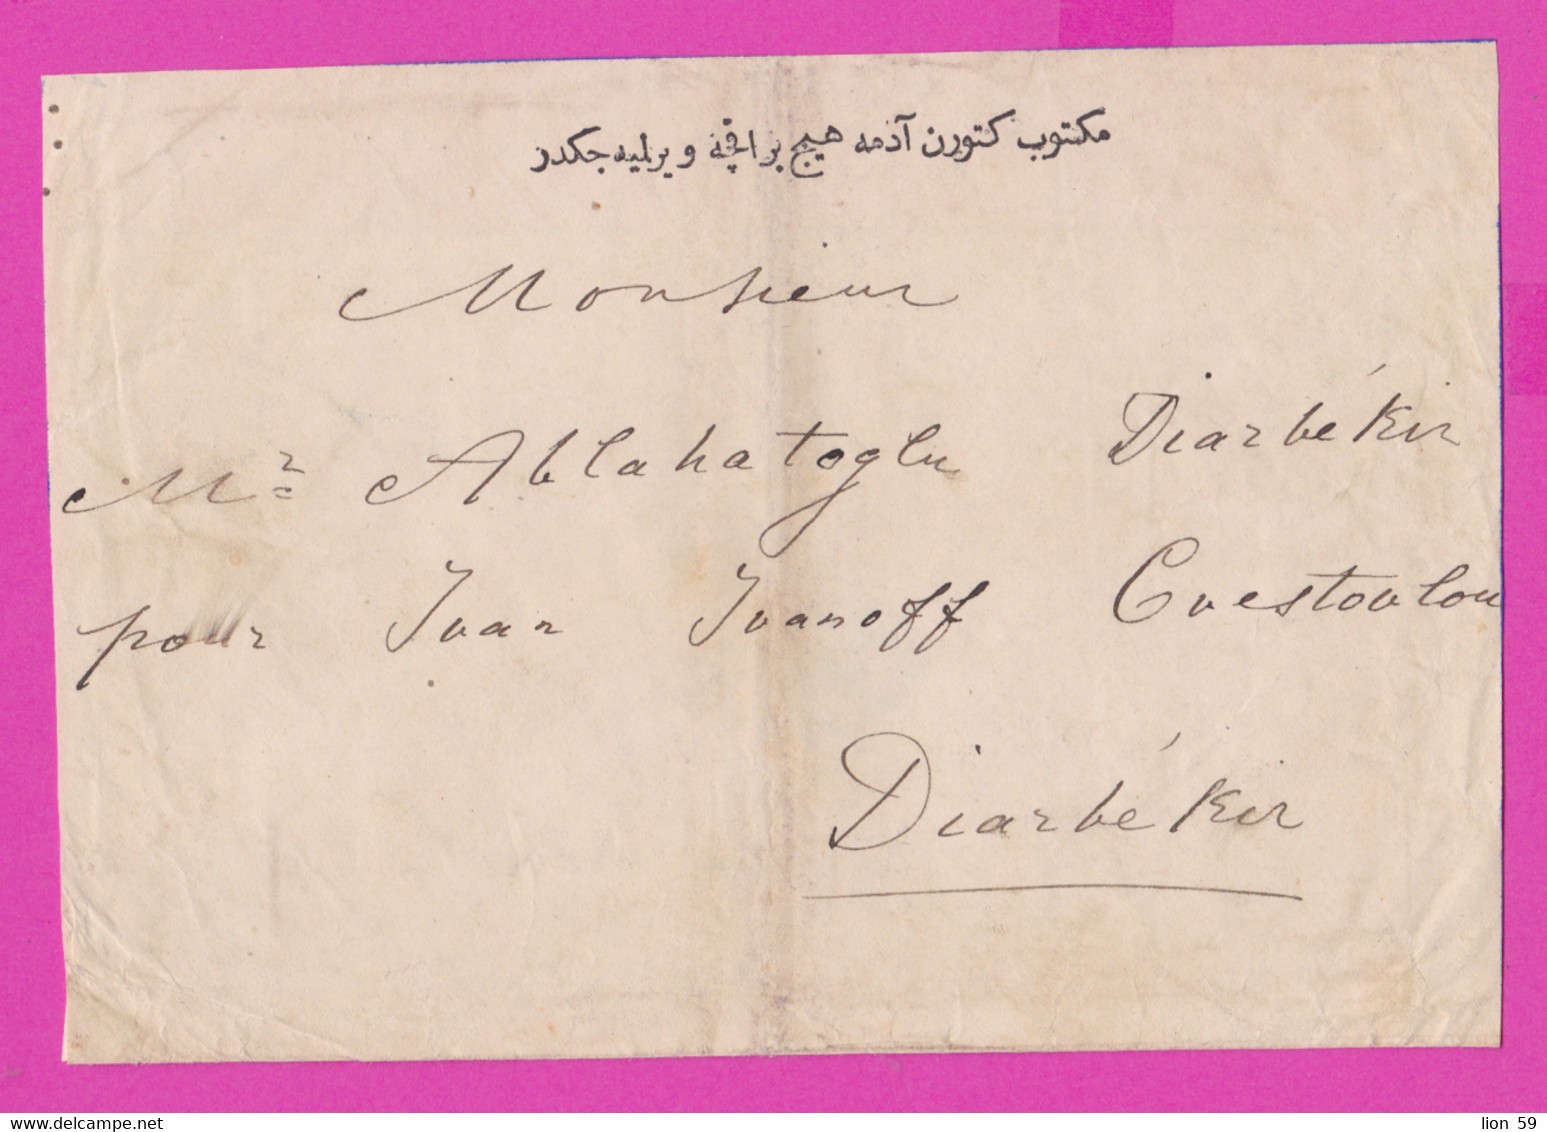 مكتوب كتورن آدمه هيچ بر اقچه ويريليه جكدر
Monsieur
Mr Ablahatoglu Diarbékir
pour Ivan Ivanoff Cvestovlou
Diarbékir
lion 59